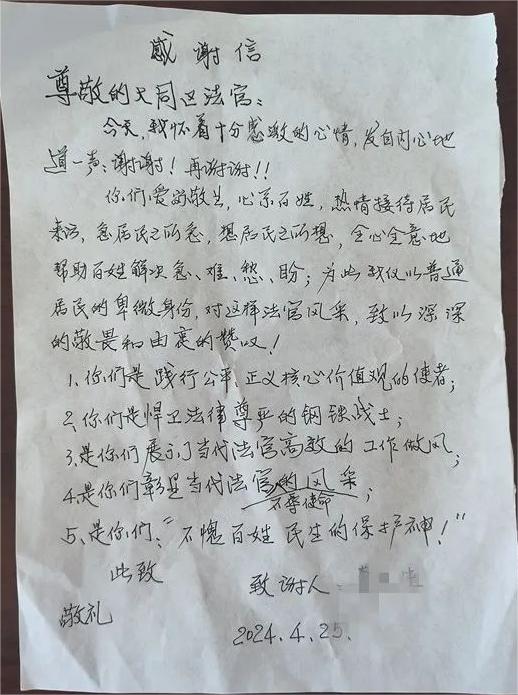 感谢信
尊敬的大同区法官：
今天，我怀着十分感激的心情，发自内心地
道一声：谢谢！再谢谢！！
你们爱岗敬业，心系百姓，热情接待居民
来访，急居民之所急，想居民之所想，全心全意地
帮助百姓解决急、难、愁、盼；为此我仅以普通
居民的卑微身份，对这样法官风采，致以深深
的敬畏和由衷的赞叹！
1、你们是践行公平、正义核心价值观的使者；
2、你们是悍卫法律尊严的钢铁战士；
3、是你们展示了当代法官高效的工作做风；
4、是你们彰显当代法官的风采；
不辱使命
5、是你们：“不愧百姓民生的保护神！”
此致
致谢人
敬礼
2024.4.25.